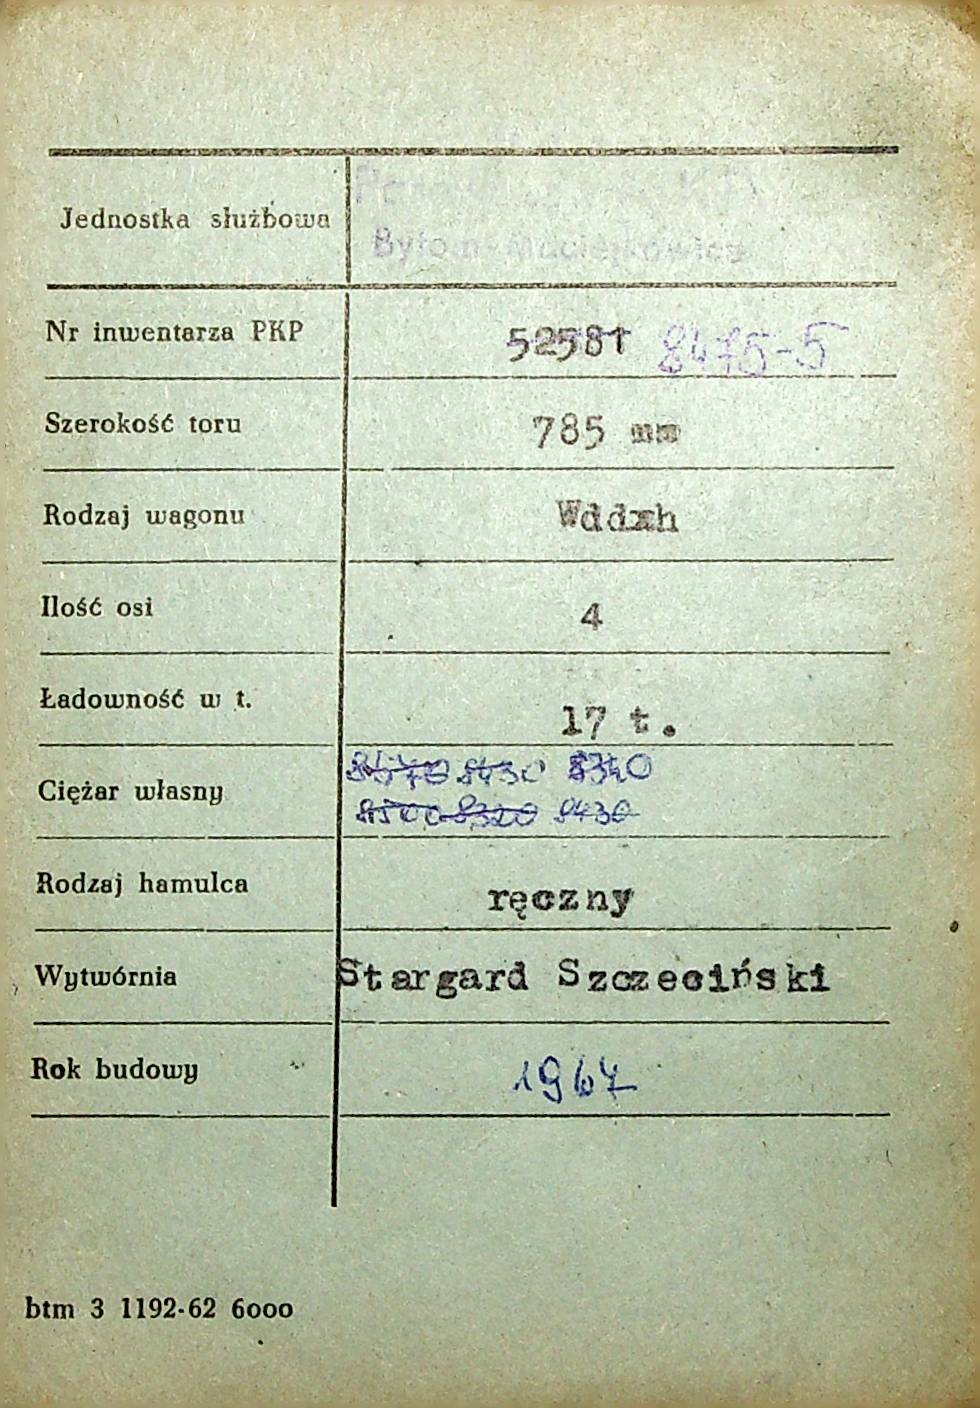 Jednostka służbowa
Bytom-Maciejkowice
Nr inwentarza PKP 52581 8475-5
Szerokość toru 785 mm
Rodzaj wagonu Wddxh
Ilość osi 4
Ładowność w t. 17 t.
8430 8340
Ciężar własny
8320 8430
Rodzaj hamulca ręczny
Wytwórnia Stargard Szczeciński
Rok budowy 1967
btm 3 1192-62 6ooo